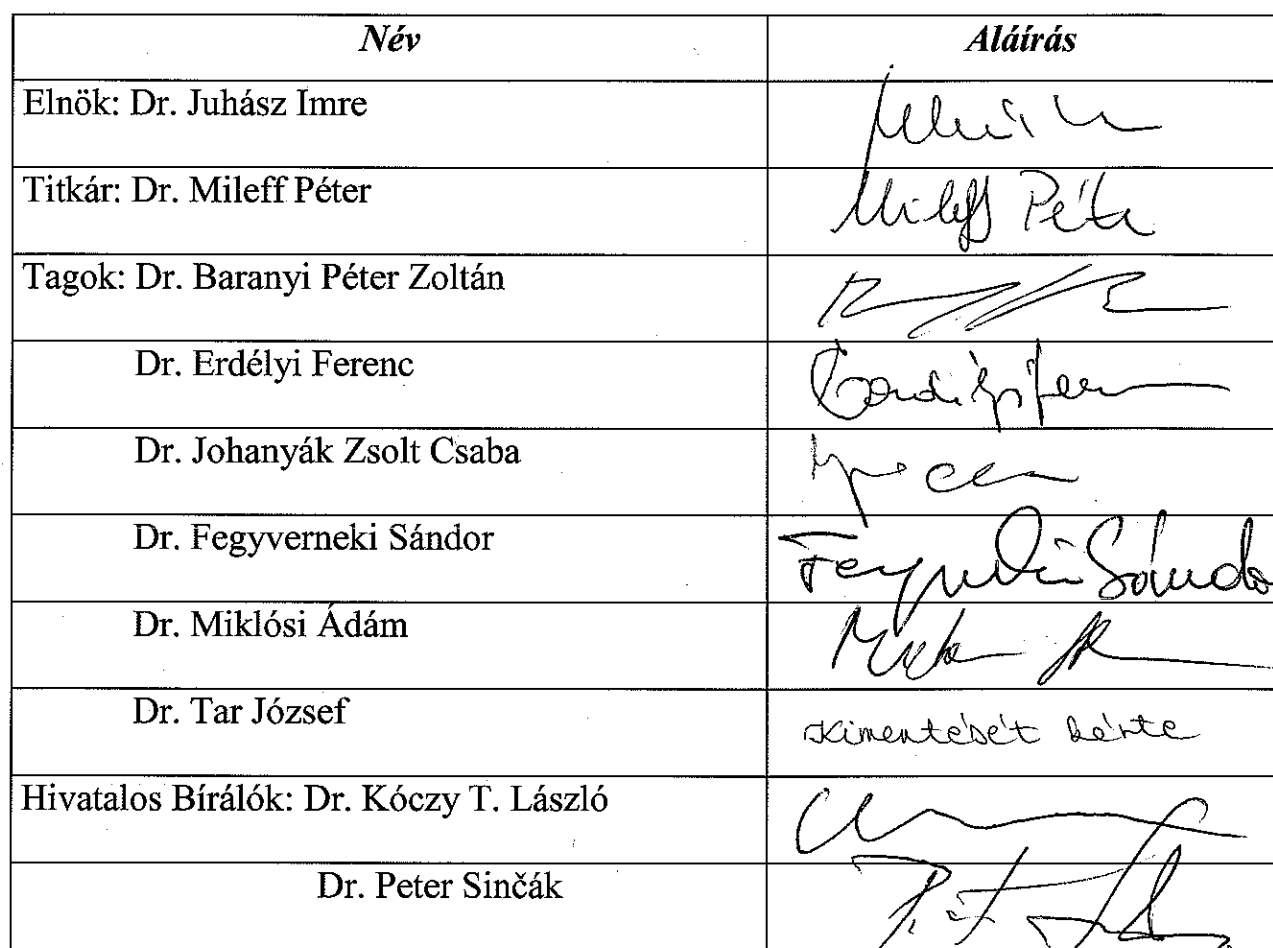 Név Aláírás
Elnök: Dr. Juhász Imre
Titkár: Dr. Mileff Péter Mileff Péter
Tagok: Dr. Baranyi Péter Zoltán
Dr. Erdélyi Ferenc
Dr. Johanyák Zsolt Csaba
Dr. Fegyverneki Sándor Fegyverneki Sándor
Dr. Miklósi Ádám
Dr. Tar József Kimentését kérte
Hivatalos Bírálók: Dr. Kóczy T. László
Dr. Peter Sinčák